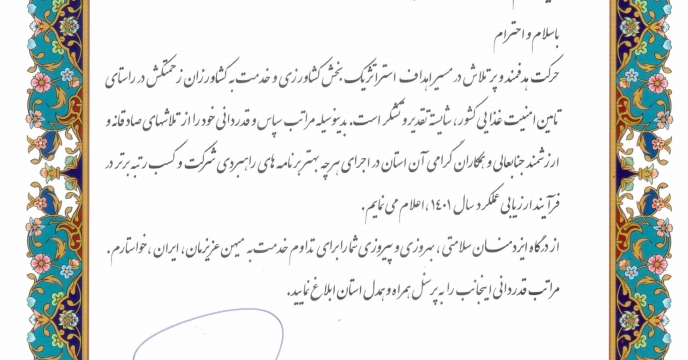 باسلام و احترام
حرکت هدفمند و پر تلاش در مسیر اهداف استراتژیک بخش کشاورزی و خدمت به کشاورزان زحمتکش در راستای
تامین امنیت غذایی کشور، شایسته تقدیر و تشکر است. بدینوسیله مراتب سپاس و قدردانی خود را از تلاشهای صادقانه و
ارزشمند جنابعالی و همکاران گرامی آن استان در اجرای هرچه بهتر برنامه های راهبردی شرکت و کسب رتبه برتر در
فرآیند ارزیابی عملکرد سال ۱۴۰۱، اعلام می نمایم.
از درگاه ایزد منان سلامتی، بهروزی و پیروزی شما را برای تداوم خدمت به میهن عزیزمان، ایران، خواستارم.
مراتب قدردانی اینجانب را به پرسنل همراه و همدل استان ابلاغ نمایید.